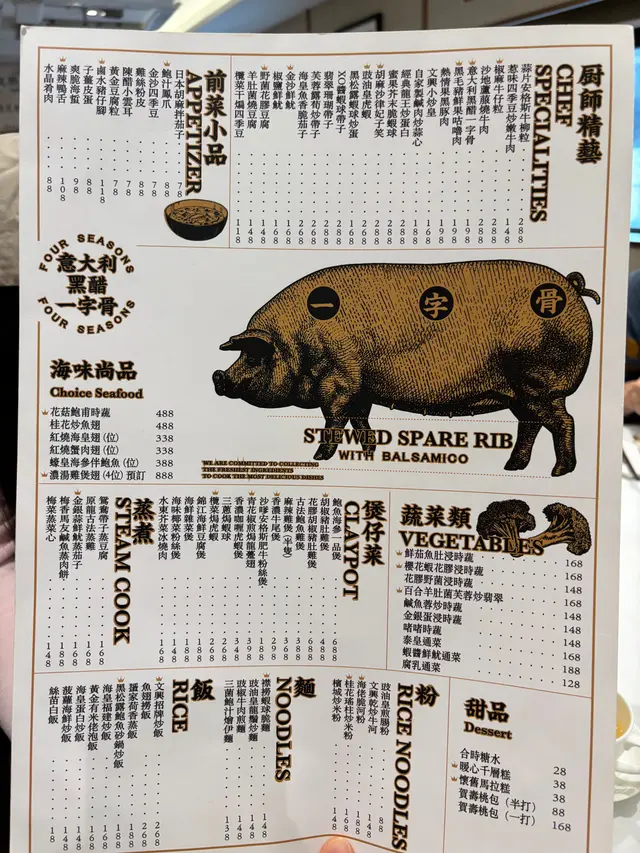 廚師精藝
CHEF
SPECIALITIES
蒜片安格斯牛柳粒
惹味四季豆炒嫩牛肉
椒麻牛仔粒
意大利黑醋一字骨
黑毛豬鮮果咕嚕肉
熱情果黑豚肉
文興小炒皇
自家製鹹肉炒蒜心
經典龍王炒蛋白
蜜果芥末脆蝦球
胡麻沙律妃子笑
豉油皇虎蝦
黑松露蝦球炒蛋
XO醬蝦球帶子
翡翠珊瑚帶子
芙蓉露筍炒帶子
海皇魚香脆茄子
金沙鮮魷
椒鹽鮮魷
野菌花膠豆腐
羊肚菌燒豆腐
欖菜干煸四季豆
前菜小品
APPETIZER
日本胡麻拌茄子 78
鮑汁鳳爪 88
金沙四季豆 78
雞絲粉皮 88
陳醋小雲耳 78
黃金豆腐粒 78
鹵水豬仔腳 88
子薑皮蛋 88
爽脆海蜇 98
麻辣鴨舌 108
水晶肴肉 88
FOUR SEASONS
意大利
黑醋
一字骨
FOUR SEASONS
一字骨
STEWED SPARE RIB
WITH BALSAMICO
WE ARE COMMITTED TO COLLECTING
THE FRESHEST INGREDIENTS
TO COOK THE MOST DELICIOUS DISHES
海味尚品
Choice Seafood
花菇鮑甫時蔬 488
桂花炒魚翅 488
紅燒海皇翅(位) 338
紅燒蟹肉翅(位) 338
蠔皇海參伴鮑魚(位) 388
濃湯雞煲翅(4位)預訂 888
蔬菜類
VEGETABLES
鮮茄魚肚浸時蔬 168
櫻花蝦花膠浸時蔬 168
花膠野菌浸時蔬 168
百合羊肚菌芙蓉炒翡翠 148
鹹魚蓉炒時蔬 148
金銀蛋浸時蔬 148
啫啫時蔬 148
泰皇通菜 148
蝦醬鮮魷通菜 188
腐乳通菜 128
煲仔菜
CLAYPOT
鮑魚海參一品煲
胡椒豬肚雞煲
花膠胡椒豬肚雞煲
古法鮑魚雞煲
麻辣雞煲(半隻)
香濃牛尾煲
沙嗲安格斯肥牛粉絲煲
青花椒焗龍躉翅
香濃咖喱虎蝦煲
三蔥焗蝦球
欖菜焗虎蝦
錦江海鮮豆腐煲
海鮮雜菜煲
海味椰菜粉絲煲
水東芥菜冰燒肉
蒸煮
STEAM COOK
鴛鴦帶子蒸豆腐
原籠古法蒸雞
金銀蒜鮮魷蒸茄子
梅香馬友鹹魚蒸肉餅
梅菜蒸菜心
粉
RICE NOODLES
豉油皇煎腸粉
文興乾炒牛河
海佬脆河粉
桂花瑤柱炒米粉
檳城炒米粉
麵
NOODLES
襟撈蝦球脆麵
豉油皇龍鬚炒麵
豉椒牛肉煎麵
三菌鮑汁燴伊麵
飯
RICE
文興招牌炒飯
魚翅撈飯
蜑家荷香蒸飯
黑松露鮑魚砂鍋炒飯
海皇福建炒飯
黃金有米佬泡飯
海皇蛋白炒飯
菠蘿海鮮炒飯
絲苗白飯
甜品
Dessert
合時糖水 28
暖心千層糕 38
懷舊馬拉糕 38
賀壽桃包(半打) 88
賀壽桃包(一打) 168